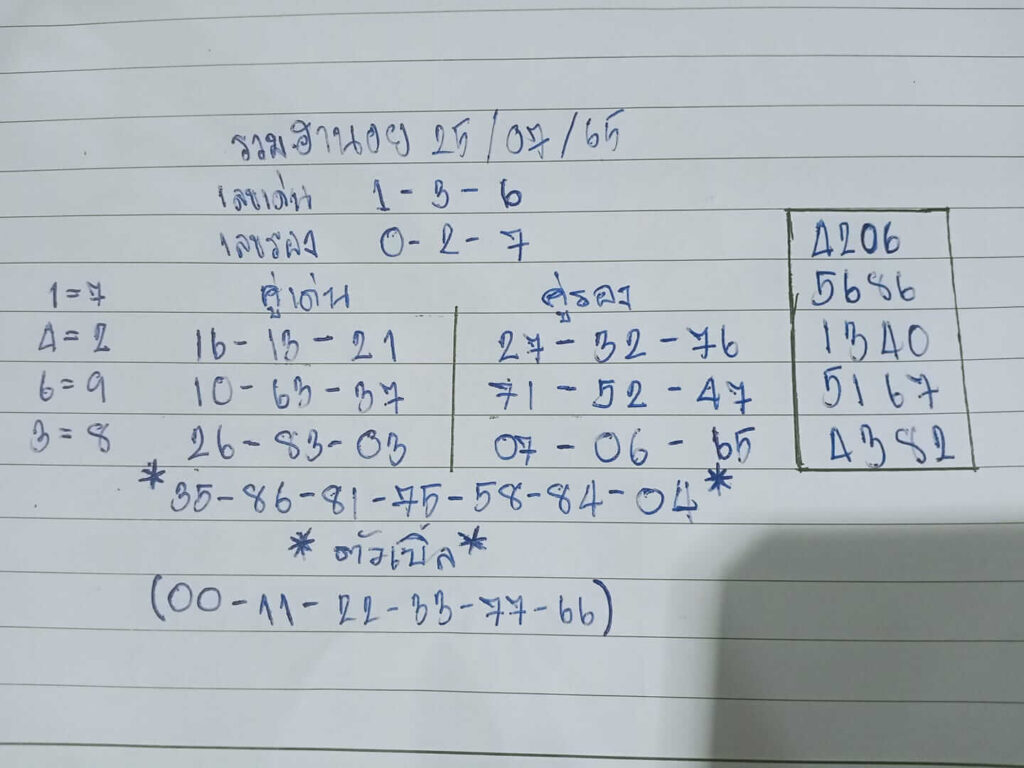 รวมฮานอย 25/07/65
เลขเด่น 1-3-6
เลขรอง 0-2-7
คู่เด่น คู่รอง
16-13-21 27-32-76
10-63-37 71-52-47
26-83-03 07-06-65
*35-86-81-75-58-84-04*
*ตัวเบิ้ล*
(00-11-22-33-77-66)
1=7
4=2
6=9
3=8
4206
5686
1340
5167
4382